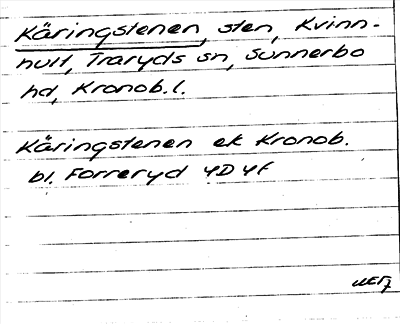 Käringstenen, sten, Kvinn-
hult, Traryds sn, Sunnerbo
hd, Kronob. l.
Käringstenen ek Kronob.
bl. Forreryd 4D4f